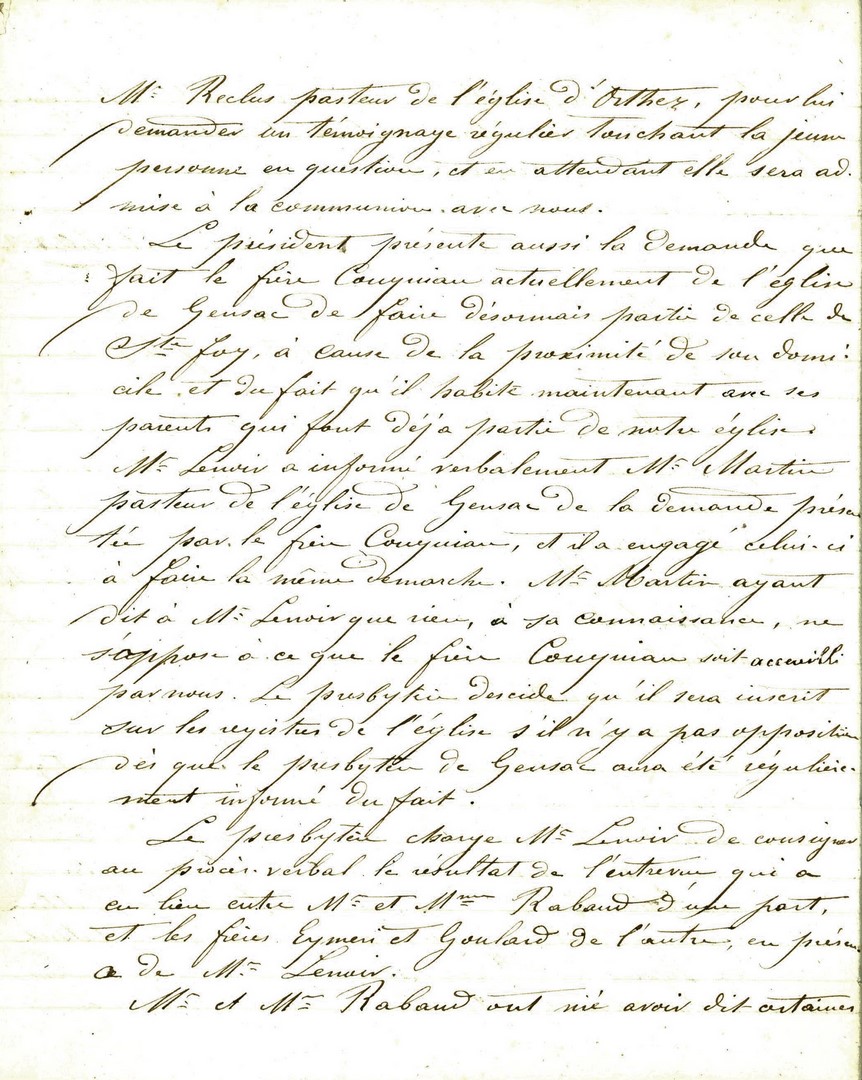 Mr Reclus pasteur de l'église d'Orthez, pour lui
demander un témoignage régulier touchant la jeune
personne en question, et en attendant elle sera ad-
mise à la communion avec nous.
Le président présente aussi la demande que
fait le frère Couyniau actuellement de l'église
de Gensac de faire désormais partie de celle de
Ste foy, à cause de la proximité de son domi-
cile et du fait qu'il habite maintenant avec ses
parents qui font déja partie de notre église.
Mr Lenoir a informé verbalement Mr Martin
pasteur de l'église de Gensac de la demande présen-
tée par le frère Couyniau, et il a engagé celui-ci
à faire la même demarche. Mr Martin ayant
dit à Mr Lenoir que rien, à sa connaissance, ne
s'oppose à ce que le frère Couyniau soit accueilli
par nous. Le presbytère descide qu'il sera inscrit
sur les registres de l'église s'il n'y a pas opposition
dès que le presbytère de Gensac aura été régulière-
ment informé du fait.
Le presbytère charge Mr Lenoir de consigner
au procès-verbal le résultat de l'entrevue qui a
eu lieu entre Mr et Mme Rabaud d'une part,
et les frères Eymeri et Goulard de l'autre, en présen-
ce de Mr Lenoir.
Mr et Mme Rabaud ont nié avoir dit certaines